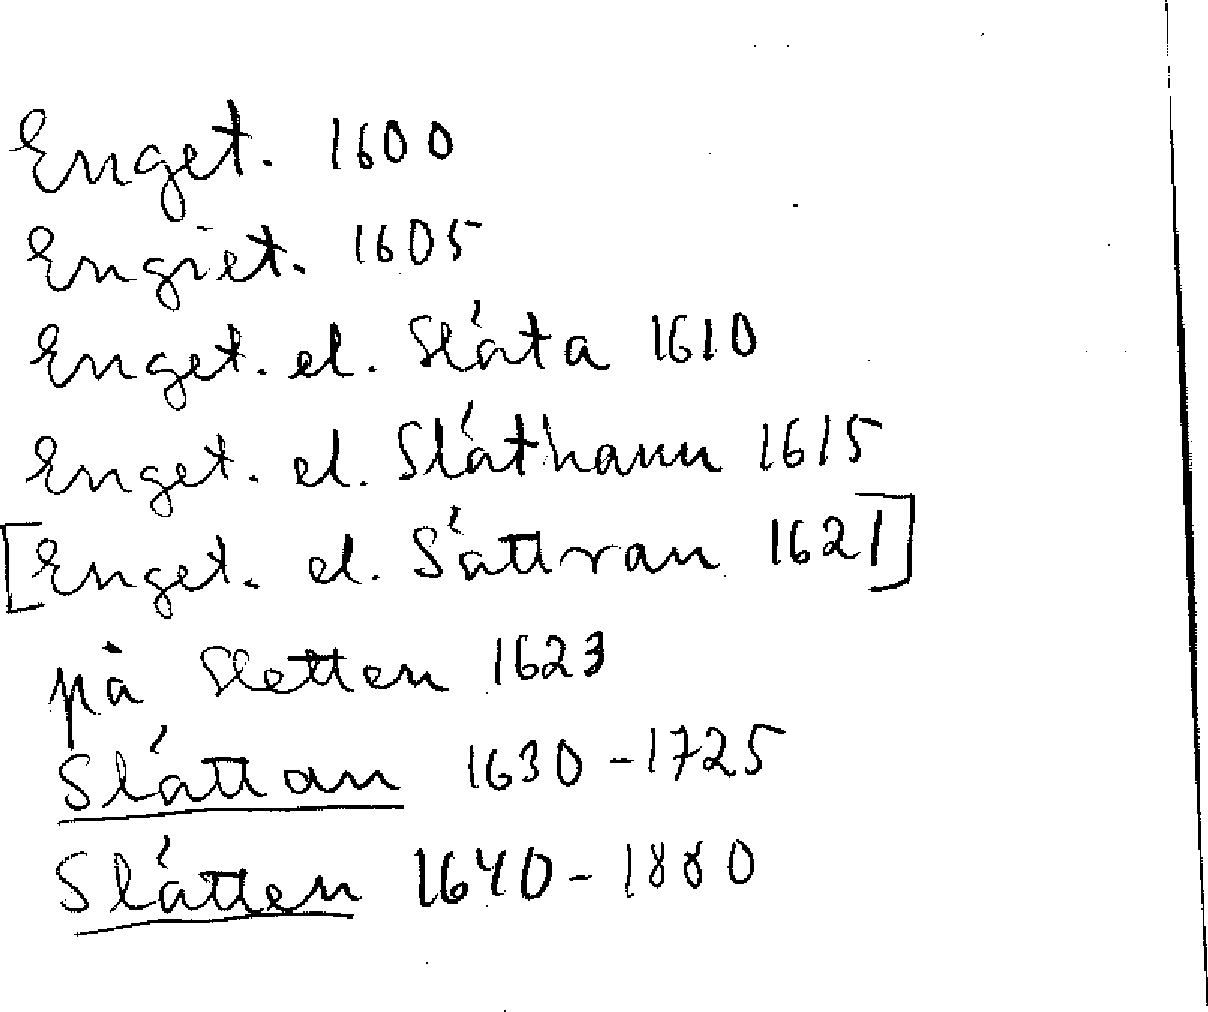 Enget. 1600
Engiet. 1605
Enget. el. Slåta 1610
Enget. el. Slåthann 1615
[Enget. el. Såttran 1621]
på Sletten 1623
Slåttan 1630-1725
Slåtten 1640-1880